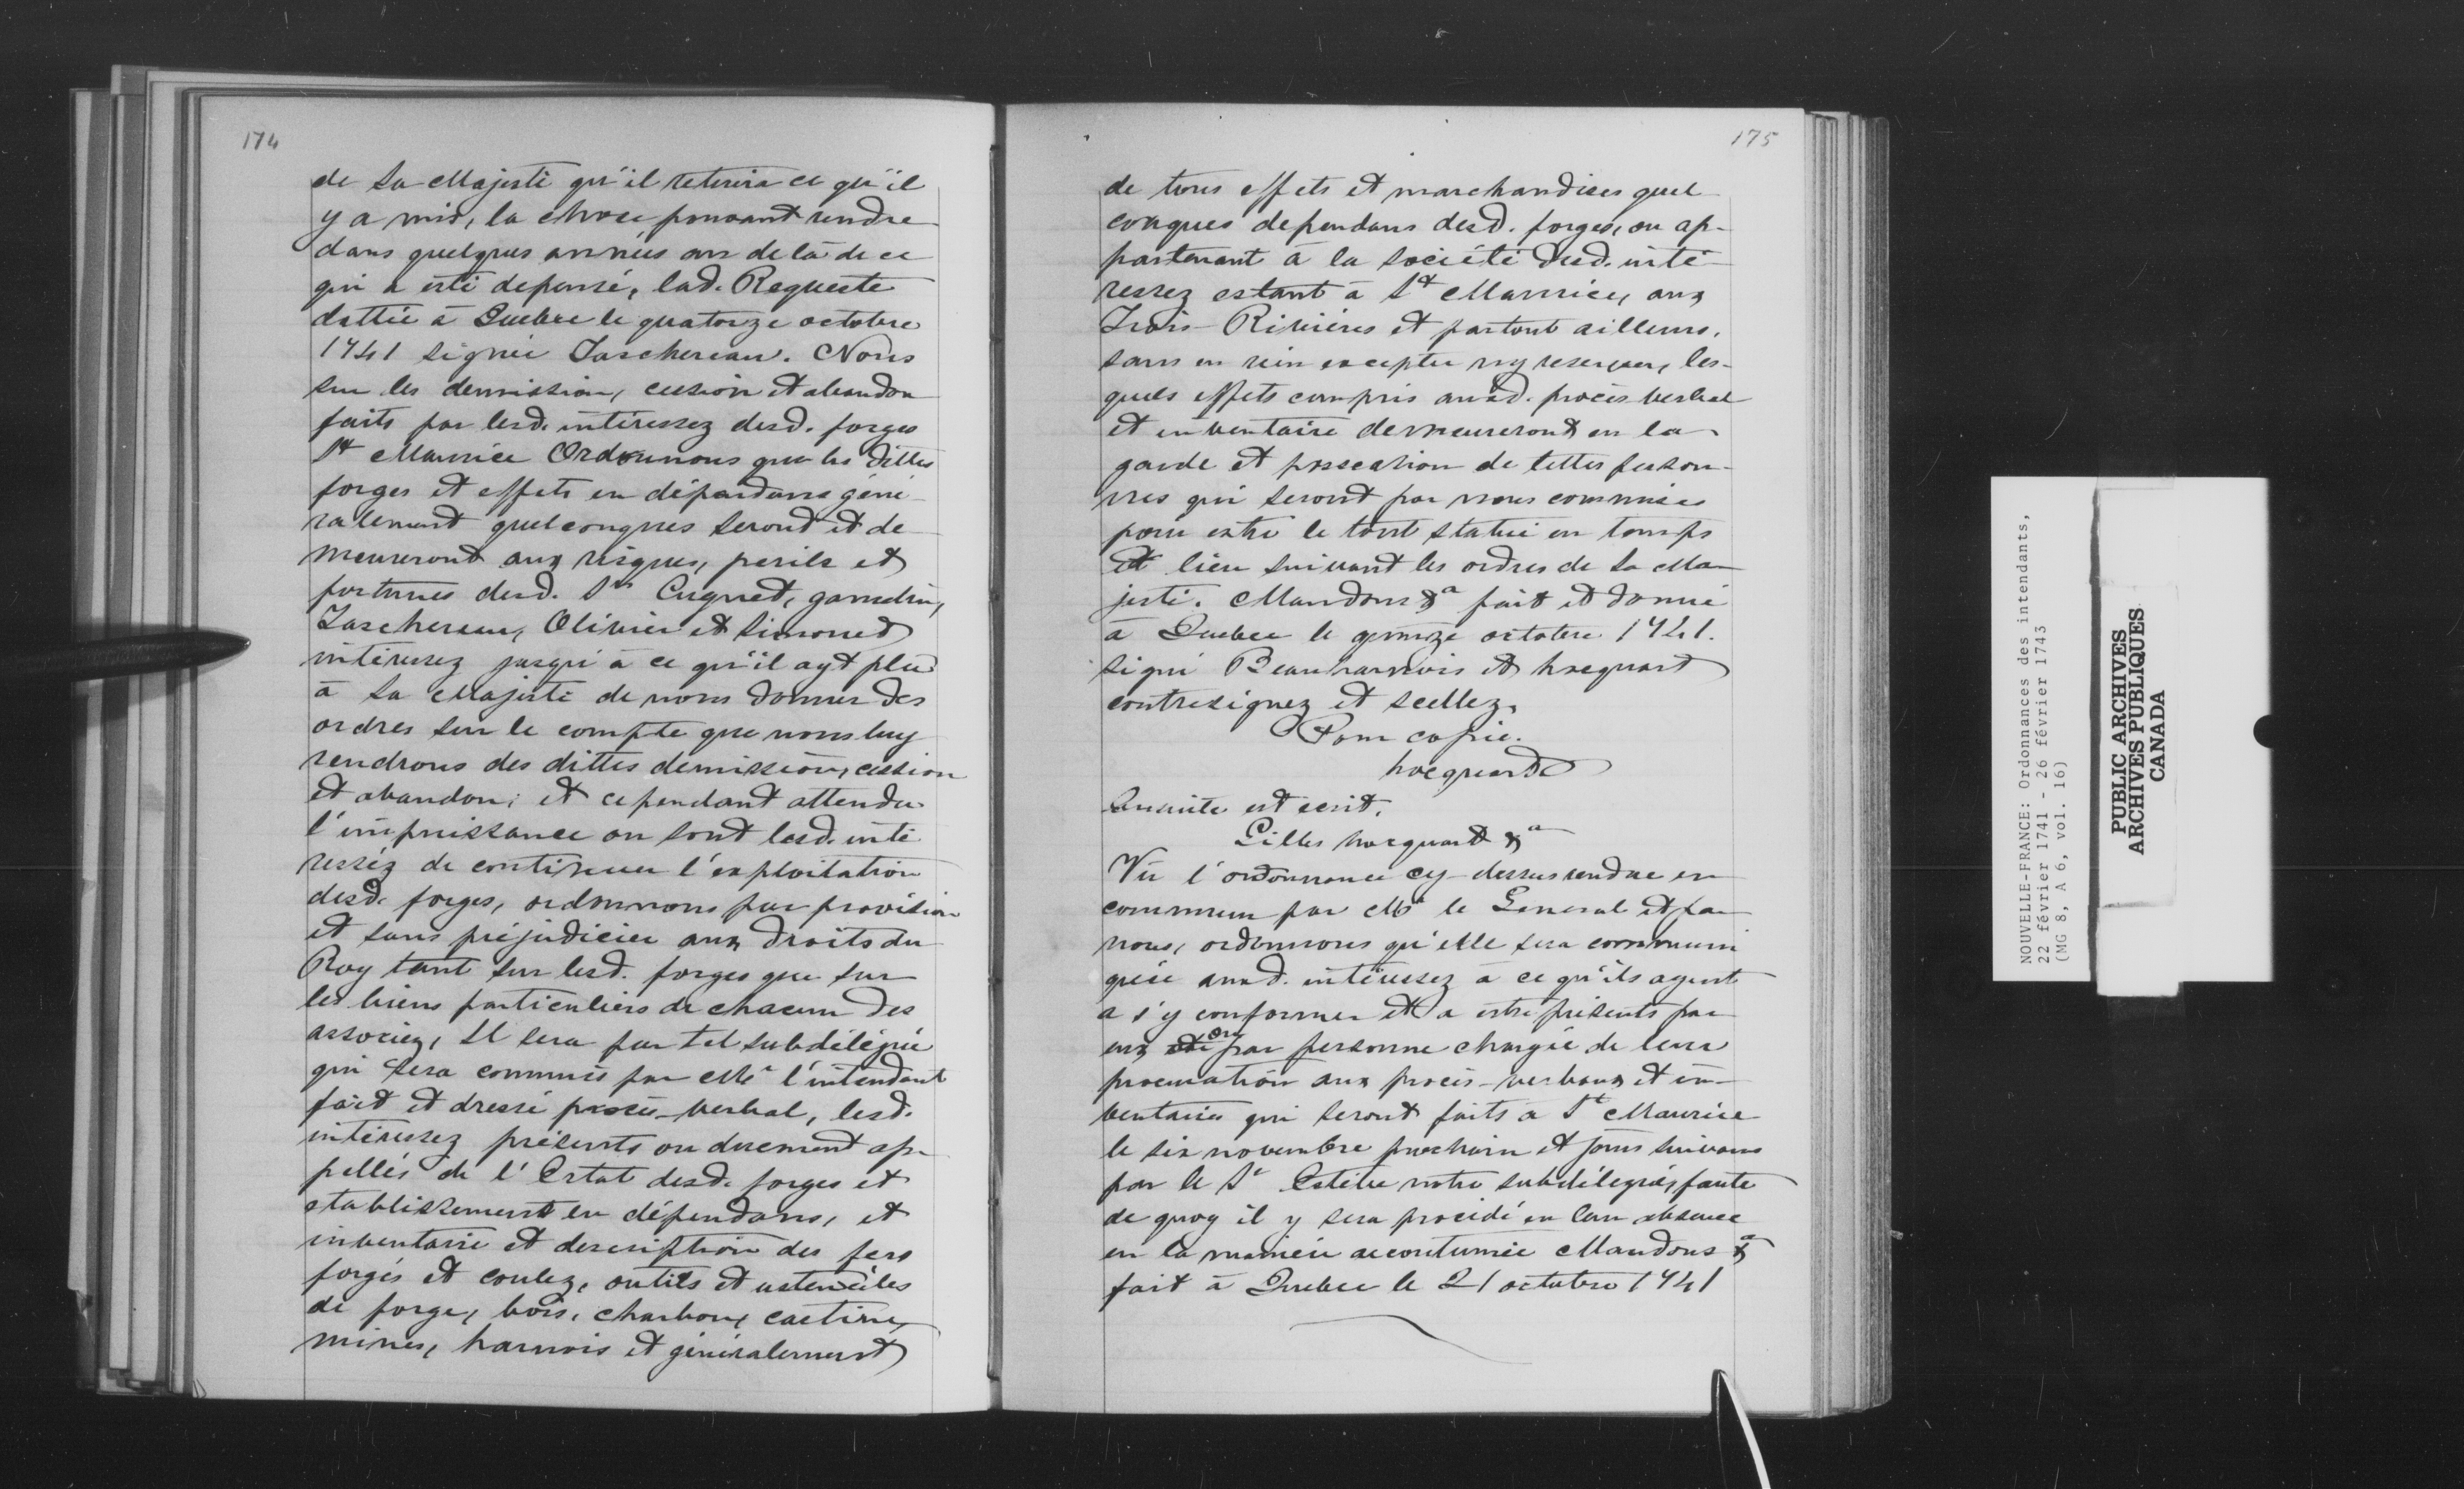 174
de Sa Majesté qu'il retirera ce qu'il
y a mis, la chose pouvant rendre
dans quelques années au de là de ce
qui a esté depensé, lad. Requeste
dattée à Quebec le quatorze octobre
1741 signée Taschereau. Nous
sur les demission, cession et abandon
faits par lesd. intéressez desd. forges
St Maurice Ordonnons que les dittes
forges et effets en dépendans géné-
ralement quelconques seront et de
meureront aux risques, perils et
fortunes desd. Srs Cugnet, gamelin,
Taschereau, Olivier et Simonet
intéressez jusqu'à ce qu'il ayt plû
à Sa Majesté de nous donner des
ordres sur le compte que nous luy
rendrons des dittes demission, cession
et abandon; et cependant attendu
l'impuissance ou sont lesd. inté
ressez de continuer l'exploitation
desd. forges, ordonnons par provision
et sans préjudicier aux droits du
Roy tant sur lesd. forges que sur
les biens particuliers de chacun des
associez, Il sera par tel subdélégué
qui sera commis par Mr l'intendant
fait et dressé procès-verbal, lesd.
intéressez présents ou duement ap-
pellés de l'Estat desd. forges et
etablissement en dépendans, et
inventaire et description des fers
forgés et coulez, outils et ustenciles
de forge, bois, charbon, castine,
mines, harnois et généralement
175
de tous effets et marchandises quel
conques dependans desd. forges, ou ap-
partenant à la société desd. inté-
ressez estant à St Maurice, aux
Trois-Rivières et partout ailleurs,
sans en rien excepter ny reserver, les-
quels effets compris auxd. procès verbal
et inventaire demeureront en la
garde et possession de telles person-
nes qui seront par nous commises
pour estre le tout statué en temps
et lieu suivant les ordres de Sa Ma
jesté. Mandons &a fait et donné
à Quebec le quinze octobre 1741.
signé Beauharnois et hocquart
contresignez et scellez.
Pour copie.
hocquart
Ensuite est écrit.
Gilles hocquart &a
Vû l'ordonnance cy-dessus rendue en
commun par Mr le General et par
nous, ordonnons qu'elle sera communi
quée auxd. intéressez à ce qu'ils ayent
a s'y conformer et a estre présents par
eux ou par personne chargée de leur
procuration aux procès-verbaux et in-
ventaires qui seront faits à St Maurice
le six novembre prochain et jours suivans
par le Sr Estèbe notre subdélégué, faute
de quoy il y sera procédé en leur absence
en la manière accoutumée Mandons &a
fait à Quebec le 21 octobre 1741
NOUVELLE-FRANCE: Ordonnances des intendants,
22 février 1741 - 26 février 1743
(MG 8, A 6, vol. 16)
PUBLIC ARCHIVES
ARCHIVES PUBLIQUES
CANADA